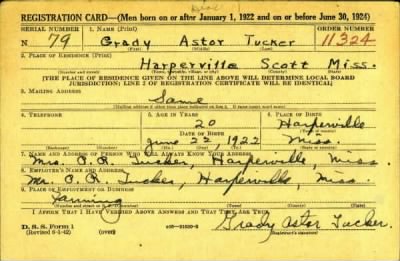 REGISTRATION CARD—(Men born on or after January 1, 1922 and on or before June 30, 1924)
SERIAL NUMBER 1. NAME (Print) ORDER NUMBER
N 79 Grady Astor Tucker 11324
(First) (Middle) (Last)
2. PLACE OF RESIDENCE (Print)
Harperville Scott Miss.
(Number and street) (Town, township, village, or city) (County) (State)
[THE PLACE OF RESIDENCE GIVEN ON THE LINE ABOVE WILL DETERMINE LOCAL BOARD
JURISDICTION; LINE 2 OF REGISTRATION CERTIFICATE WILL BE IDENTICAL]
3. MAILING ADDRESS
Same
[Mailing address if other than place indicated on line 2. If same insert word same]
4. TELEPHONE 5. AGE IN YEARS 6. PLACE OF BIRTH
20 Harperville
DATE OF BIRTH
June 22, 1922 Miss.
(Exchange) (Number) (Mo.) (Day) (Yr.) (State or country)
7. NAME AND ADDRESS OF PERSON WHO WILL ALWAYS KNOW YOUR ADDRESS
Mrs. O. R. Tucker, Harperville, Miss.
8. EMPLOYER'S NAME AND ADDRESS
Mr. O. R. Tucker, Harperville, Miss.
9. PLACE OF EMPLOYMENT OR BUSINESS
Farming
(Number and street or R. F. D. number) (Town) (County) (State)
I AFFIRM THAT I HAVE VERIFIED ABOVE ANSWERS AND THAT THEY ARE TRUE.
D. S. S. Form 1
(Revised 6-1-42) (over) Grady Astor Tucker
(Registrant's signature)